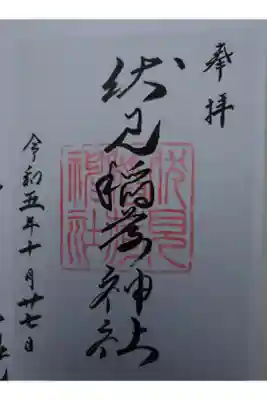 奉拝
伏見稲荷神社
伏見稲荷神社
令和五年十月廿七日